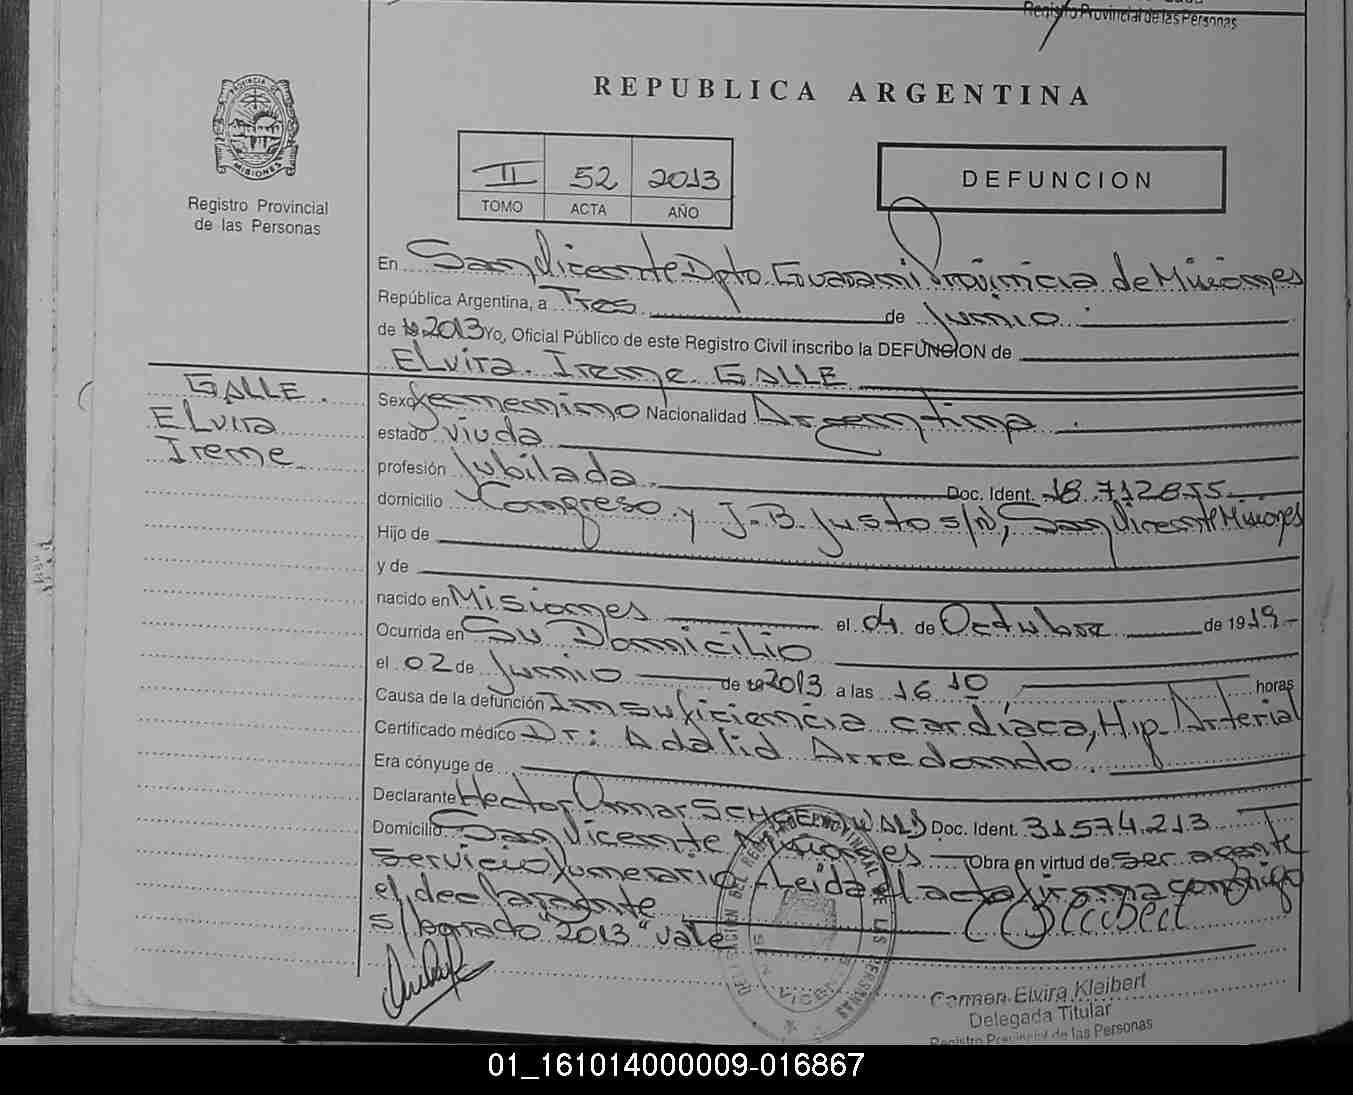 Registro Provincial de las Personas
PROVINCIA DE
MISIONES
Registro Provincial
de las Personas
REPUBLICA ARGENTINA
II 52 2013
TOMO ACTA AÑO
DEFUNCION
En San Vicente Dpto. Guarani Provincia de Misiones
República Argentina, a Tres de Junio
de 19 2013 Yo, Oficial Público de este Registro Civil inscribo la DEFUNCION de
Elvira Irene GALLE
GALLE.
Elvira
Irene
Sexo femenino Nacionalidad Argentina
estado viuda
profesión Jubilada Doc. Ident. 18.712.855
domicilio Congreso y J.B. Justo s/n, San Vicente Misiones
Hijo de
y de
nacido en Misiones el 04 de Octubre de 1919
Ocurrida en Su Domicilio
el 02 de Junio de 19 2013 a las 16 10 horas
Causa de la defunción Insuficiencia cardíaca, Hip. Arterial
Certificado médico Dr: Adalid Arredondo.
Era cónyuge de
Declarante Hector Omar Doc. Ident. 31.574.213
Domicilio San Vicente Misiones Obra en virtud de ser agente
servicio funerario - Leida el acta firma conmigo
el declarante
s/borrado "2013" vale
Carmen Elvira Kleibert
Delegada Titular
Registro Provincial de las Personas
01_161014000009-016867